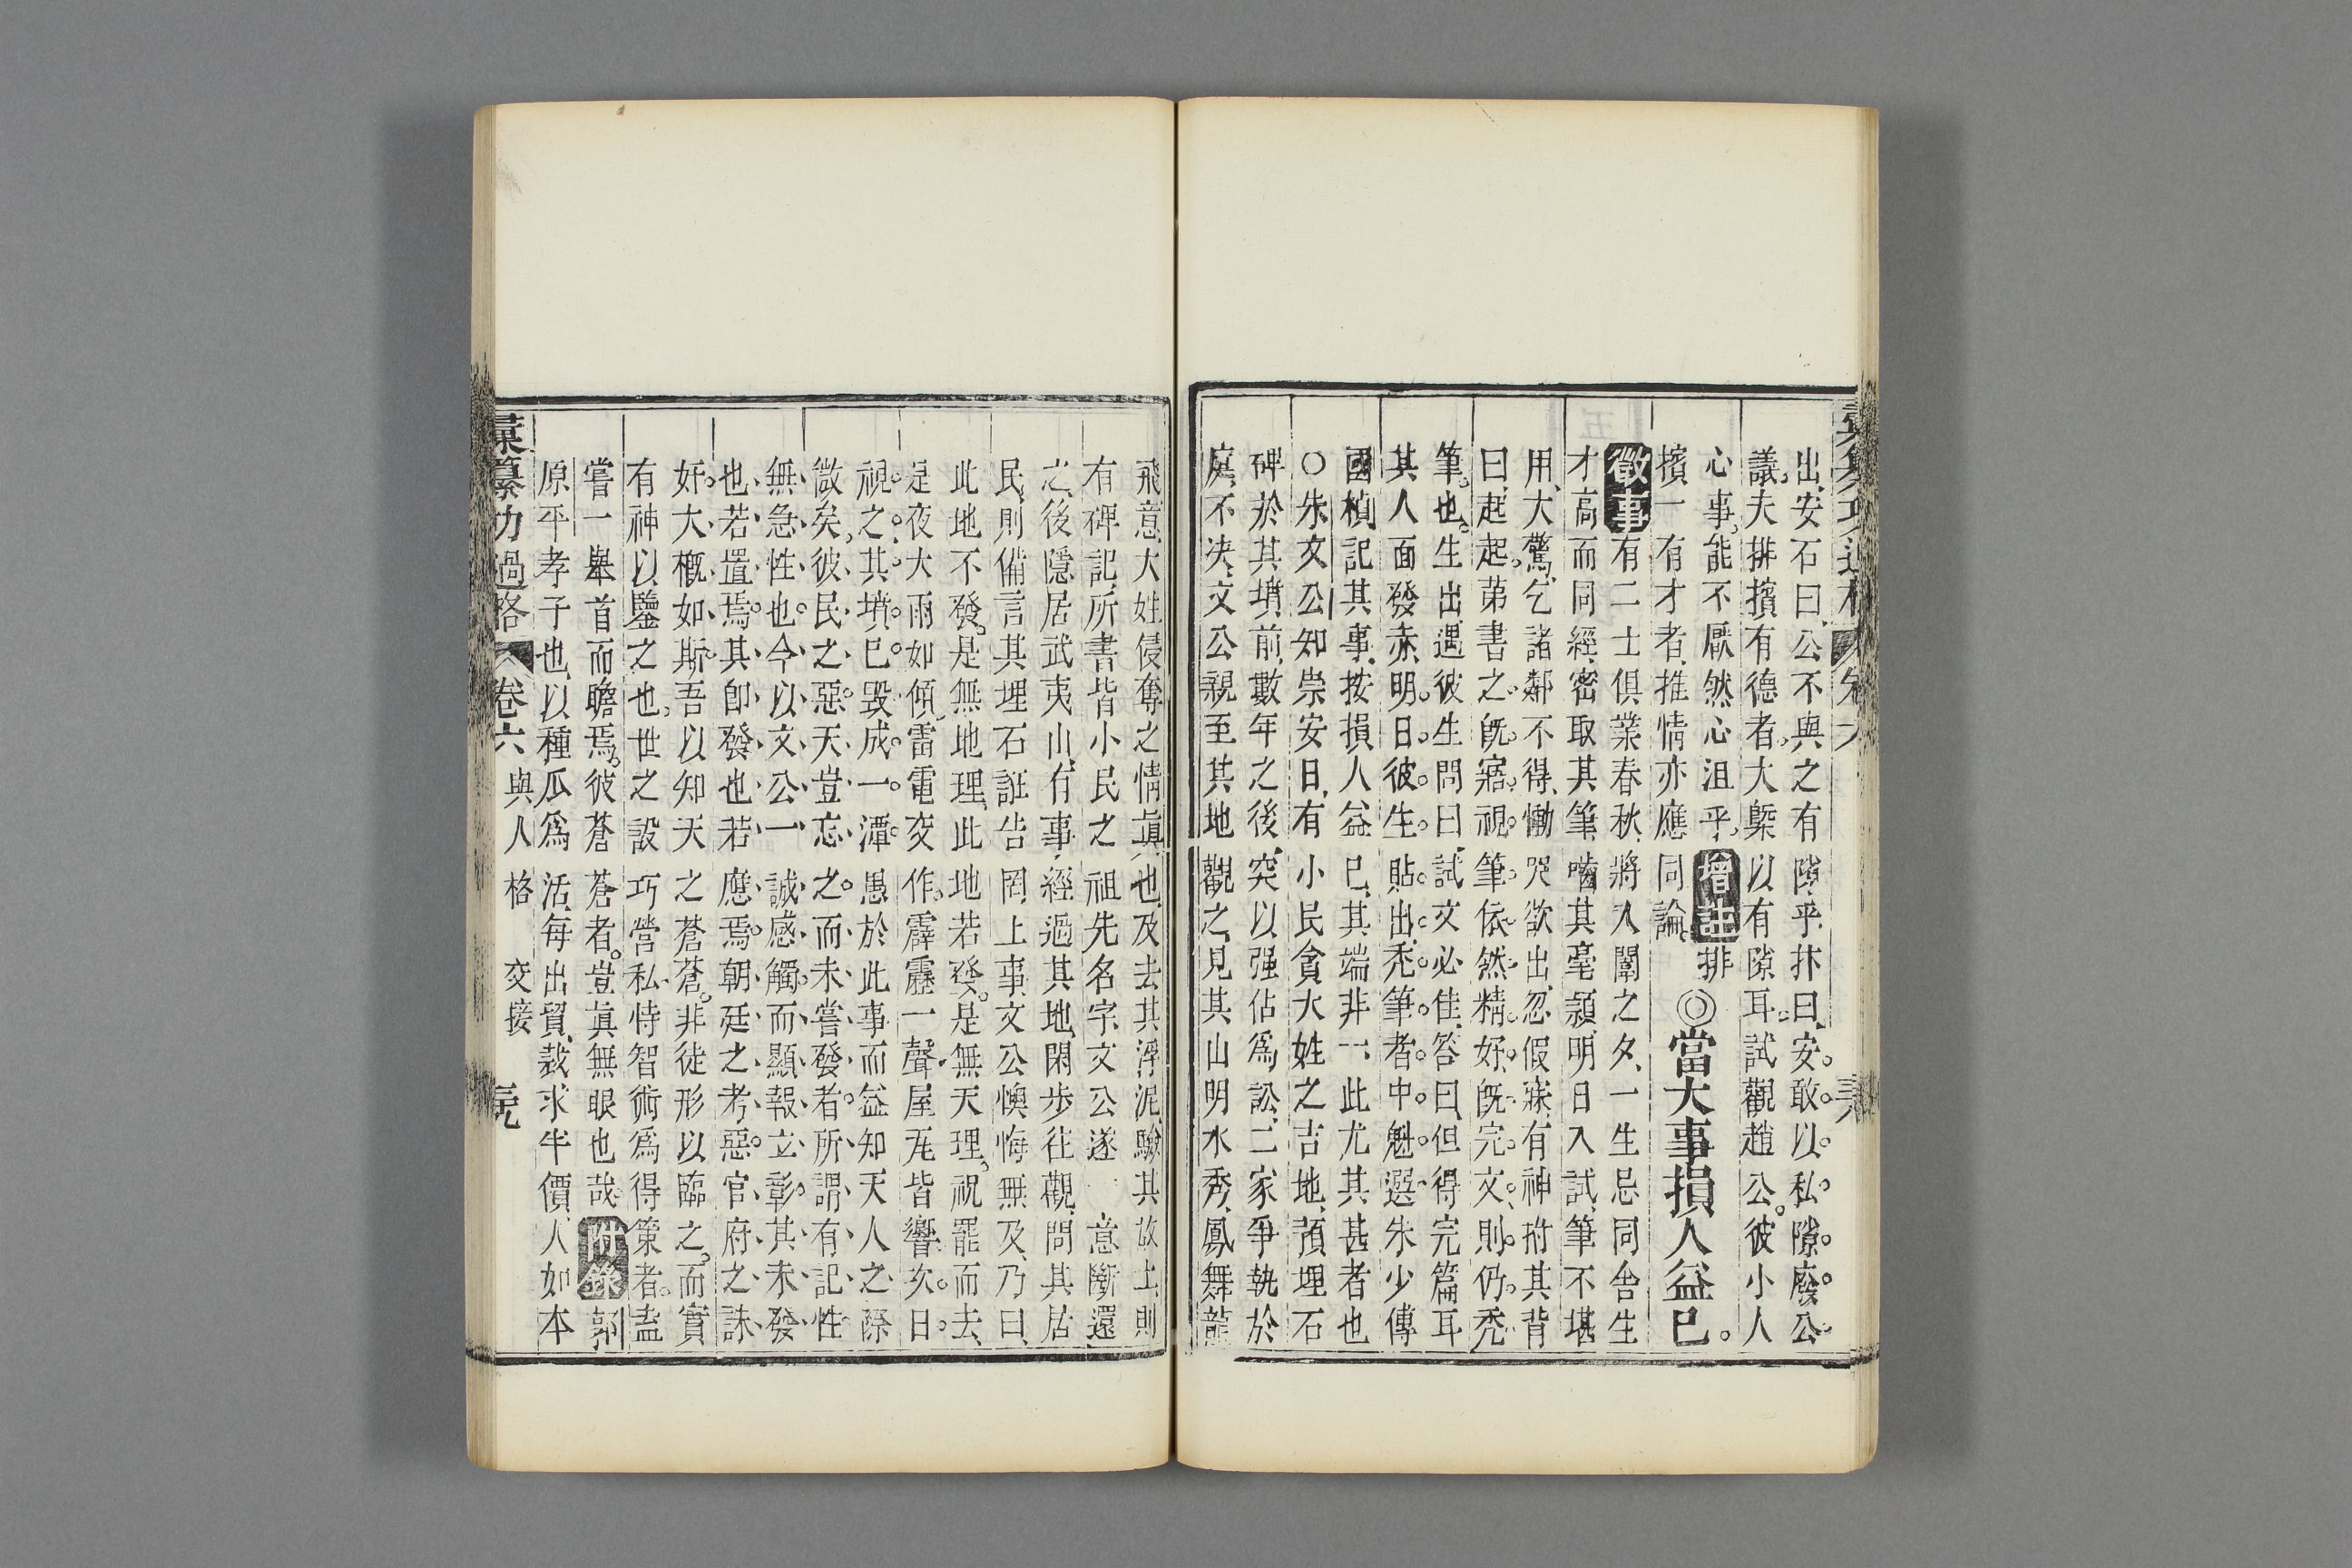 出安石曰公不與之有隙乎抃曰安敢以私隙廢公
議夫排擯有德者大槩以有隙耳試觀趙公彼小人
心事能不厭然心沮乎增註排
擯一有才者推情亦應同論◎當大事損人益已
徵事有二士俱業春秋將入闈之夕一生忌同舍生
才高而同經密取其筆嚙其毫頴明日入試筆不堪
用大驚乞諸鄰不得慟哭欲出忽假寐有神拊其背
曰起起弟書之旣寤視筆依然精好旣完文則仍禿
筆也生出遇彼生問曰試文必佳答曰但得完篇耳
其人面發赤明日彼生貼出禿筆者中魁選朱少傅
國楨記其事按損人益已其端非一此尤其甚者也
○朱文公知崇安日有小民貪大姓之吉地預埋石
碑於其墳前數年之後突以强佔爲訟二家爭執於
庭不决文公親至其地觀之見其山明水秀鳳舞龍
飛意大姓侵奪之情眞也及去其浮泥驗其故土則
有碑記所書皆小民之祖先名字文公遂一意斷還
之後隱居武夷山有事經過其地閑步往觀問其居
民則備言其埋石誑告罔上事文公懊悔無及乃曰
此地不發是無地理此地若發是無天理祝罷而去
是夜大雨如傾雷電交作霹靂一聲屋瓦皆響次日
視之其墳已毀成一潭愚於此事而益知天人之際
微矣彼民之惡天豈忘之而未嘗發者所謂有記性
無急性也今以文公一誠感觸而顯報立彰其未發
也若置焉其卽發也若應焉朝廷之考惡官府之誅
奸大槪如斯吾以知天之蒼蒼非徒形以臨之而實
有神以鑒之也世之設巧營私恃智術爲得策者盍
嘗一舉首而瞻焉彼蒼蒼者豈眞無眼也哉附錄郭
原平孝子也以種瓜爲活每出貿裁求半價人如本
彙纂功過格 卷六 與人格 交接 三九